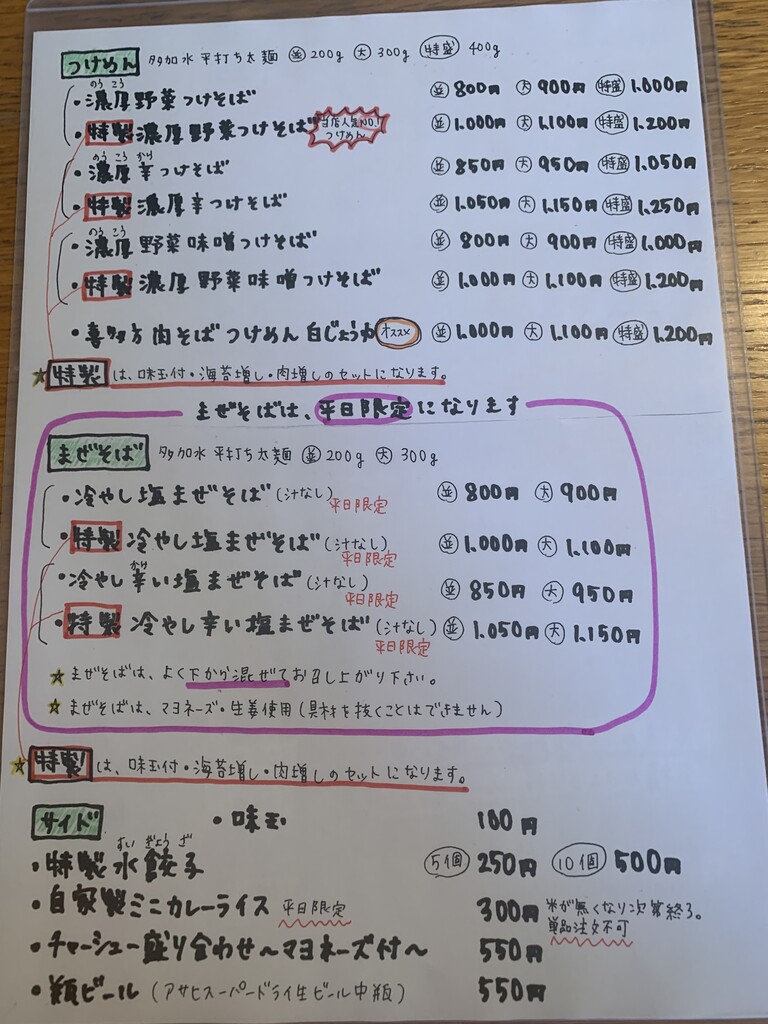 つけめん 多加水 平打ち太麺 並200g 大300g 特盛400g
・濃厚野菜つけそば 並800円 大900円 特盛1.000円
のうこう
・特製濃厚野菜つけそば 並1.000円 大1.100円 特盛1.200円
当店人気NO.1
つけめん
のうこう から
・濃厚辛つけそば 並850円 大950円 特盛1.050円
・特製濃厚辛つけそば 並1.050円 大1.150円 特盛1.250円
のうこう
・濃厚野菜味噌つけそば 並800円 大900円 特盛1.000円
・特製濃厚野菜味噌つけそば 並1.000円 大1.100円 特盛1.200円
・喜多方肉そばつけめん白じょうゆ オススメ 並1.000円 大1.100円 特盛1.200円
★特製は、味玉付・海苔増し・肉増しのセットになります。
まぜそばは、平日限定になります
まぜそば 多加水 平打ち太麺 並200g 大300g
・冷やし塩まぜそば(汁なし) 平日限定 並800円 大900円
・特製冷やし塩まぜそば(汁なし) 平日限定 並1.000円 大1.100円
から
・冷やし辛い塩まぜそば(汁なし) 平日限定 並850円 大950円
・特製冷やし辛い塩まぜそば(汁なし) 平日限定 並1.050円 大1.150円
★まぜそばは、よく下から混ぜてお召し上がり下さい。
★まぜそばは、マヨネーズ・生姜使用(具材を抜くことはできません)
★特製は、味玉付・海苔増し・肉増しのセットになります。
サイド ・味玉 100円
すいぎょうざ
・特製水餃子 5個250円 10個500円
・自家製ミニカレーライス 平日限定 300円 米が無くなり次第終了。
単品注文不可
・チャーシュー盛り合わせ〜マヨネーズ付〜 550円
・瓶ビール(アサヒスーパードライ生ビール中瓶) 550円